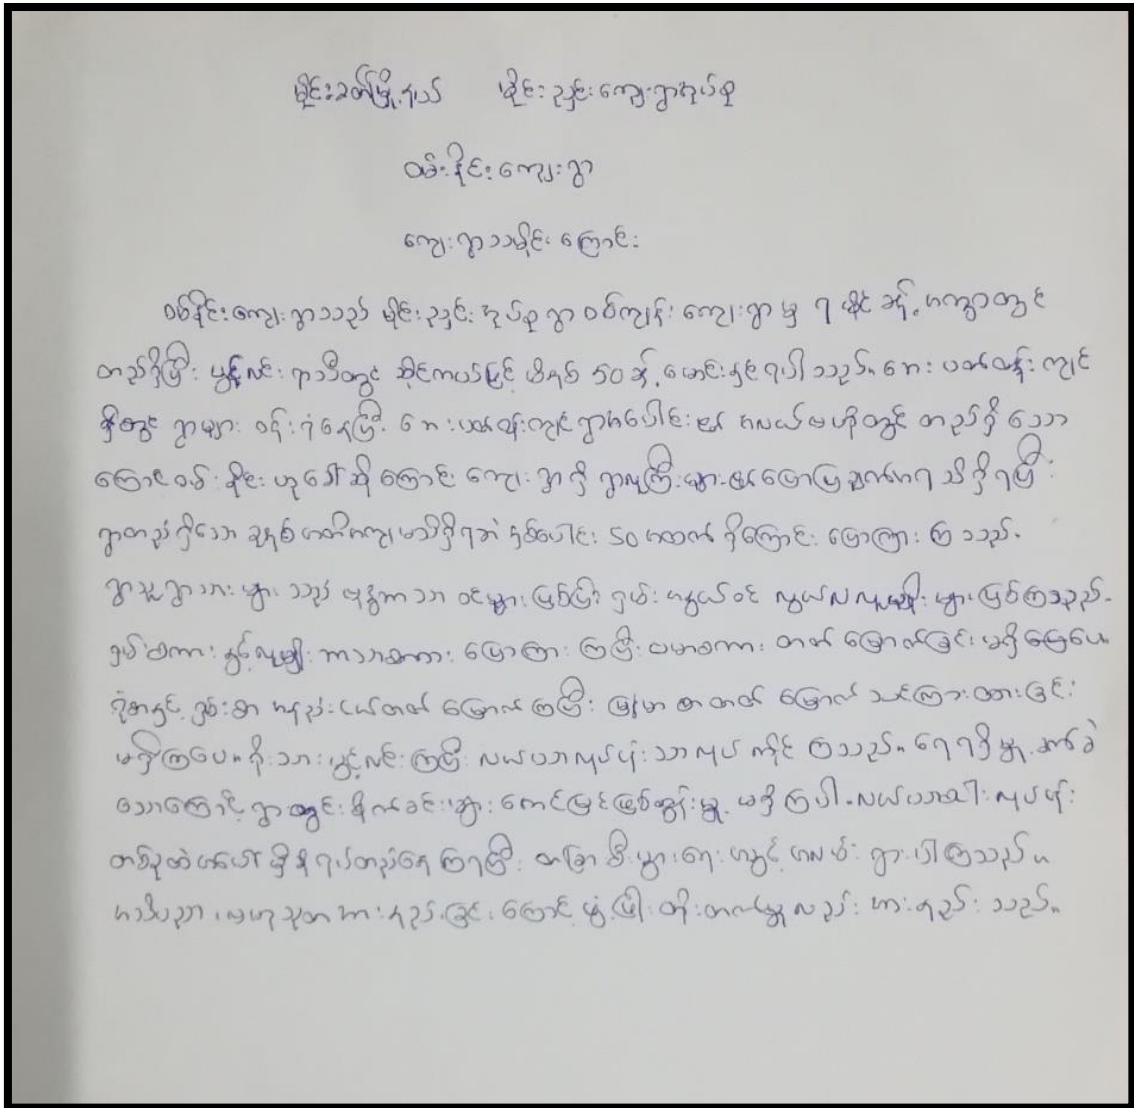 မိုင်းခတ်မြို့နယ် မိုင်းညှင်းကျေးရွာအုပ်စု
ဝမ်းနိုင်းကျေးရွာ
ကျေးရွာသမိုင်းကြောင်း
ကျေးရွာသည် မိုင်းညှင်းအုပ်စု ကျေးရွာမှ ၇ မိုင်ခန့် အကွာတွင်
တည်ရှိပြီး ပွင့်လင်းရာသီတွင် ဆိုင်ကယ်ဖြင့် မိနစ် 50 ခန့် မောင်းနှင်ရပါသည်။ ဘေးပတ်ဝန်းကျင်
ရှိတွင် ရွာများ ဝန်းရံနေပြီး ဘေးပတ်ဝန်းကျင်ရွာပေါင်း၏ အလယ်ဗဟိုတွင် တည်ရှိသော
ကြောင့် ဟုခေါ်ဆိုကြောင်း ကျေးရွာရှိ ရွာလူကြီးများ၏ ပြောပြချက်အရ သိရှိရပြီး
ရွာတည်ရှိသော ခုနှစ်အတိအကျမသိရှိရဘဲ နှစ်ပေါင်း 50 အထက် ရှိကြောင်း ပြောကြားကြသည်။
ရွာသူရွာသားများသည် ဗုဒ္ဓဘာသာဝင်များဖြစ်ပြီး ရှမ်းအနွယ်ဝင် လွယ်လလူမျိုးများဖြစ်ကြသည်။
ရှမ်းစကားနှင့်လူမျိုးဘာသာစကား ပြောကြားကြပြီး ဗမာစကား တတ်မြောက်ခြင်း မရှိ
ရှမ်းစာ အနည်းငယ်တတ်မြောက်ကြပြီး မြန်မာစာတတ်မြောက် သင်ကြားထားခြင်း
မရှိကြပေ။ ရိုးသားပွင့်လင်းကြပြီး လယ်ယာလုပ်ငန်းသာလုပ်ကိုင်ကြသည်။ ရေရရှိမှု
သောကြောင့် ရွာတွင်း စိုက်ခင်းများ အောင်မြင်ဖြစ်ထွန်းမှု မရှိကြပါ။ လယ်ယာ လုပ်ငန်း
တစ်ခုထဲအပေါ်မှီခို ရပ်တည်နေကြရပြီး တခြားစီးပွားရေးအခွင့်အလမ်း ရှားပါကြသည်။
အသိပညာ၊ ဗဟုသုတအားနည်းခြင်းကြောင့် ဖွံ့ဖြိုးတိုးတက်မှုလည်း အားနည်းသည်။